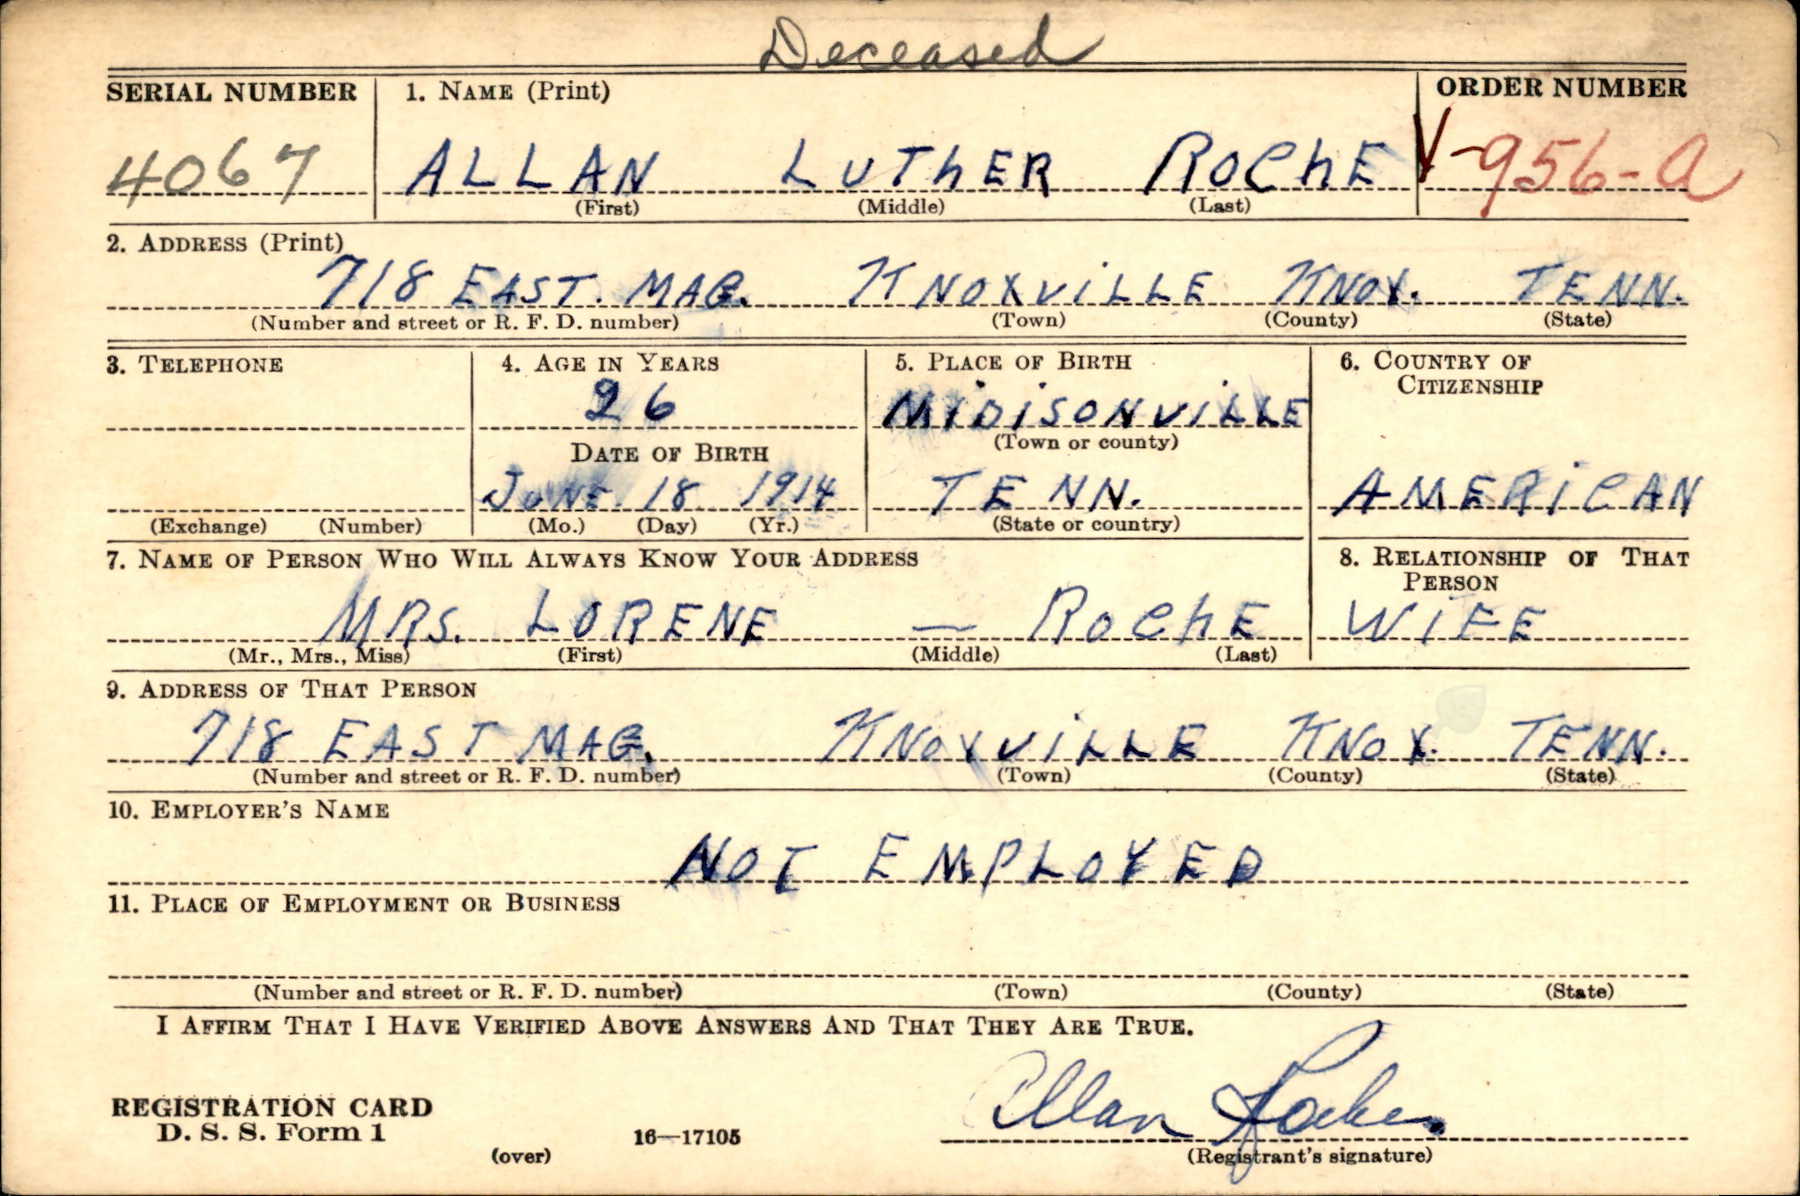 Deceased
SERIAL NUMBER 1. NAME (Print) ORDER NUMBER
4067 ALLAN LUThER ROChE V-956-A
(First) (Middle) (Last)
2. ADDRESS (Print)
718 EAST. MAG. KNOXViLLE KNOX. TENN.
(Number and street or R. F. D. number) (Town) (County) (State)
3. TELEPHONE 4. AGE IN YEARS 5. PLACE OF BIRTH 6. COUNTRY OF
CITIZENSHIP
26 MiDiSONViLLE
DATE OF BIRTH (Town or county)
JUNE. 18 1914 TENN. AMERiCAN
(Exchange) (Number) (Mo.) (Day) (Yr.) (State or country)
7. NAME OF PERSON WHO WILL ALWAYS KNOW YOUR ADDRESS 8. RELATIONSHIP OF THAT
PERSON
MRS. LORENE — ROChE WIFE
(Mr., Mrs., Miss) (First) (Middle) (Last)
9. ADDRESS OF THAT PERSON
718 EAST MAG. KNOXViLLE KNOX. TENN.
(Number and street or R. F. D. number) (Town) (County) (State)
10. EMPLOYER'S NAME
NOT EMPLOYED
11. PLACE OF EMPLOYMENT OR BUSINESS
(Number and street or R. F. D. number) (Town) (County) (State)
I AFFIRM THAT I HAVE VERIFIED ABOVE ANSWERS AND THAT THEY ARE TRUE.
Allan Roche.
REGISTRATION CARD
D. S. S. Form 1 16—17105
(over) (Registrant's signature)